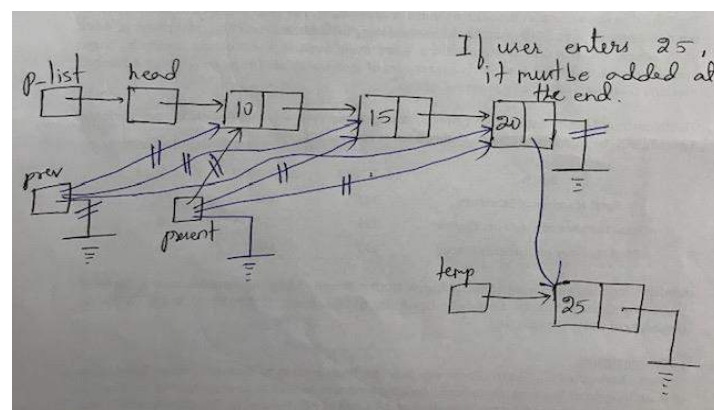 If user enters 25,
it must be added at
the end.
p-list
head
10
15
20
prev
present
temp
25